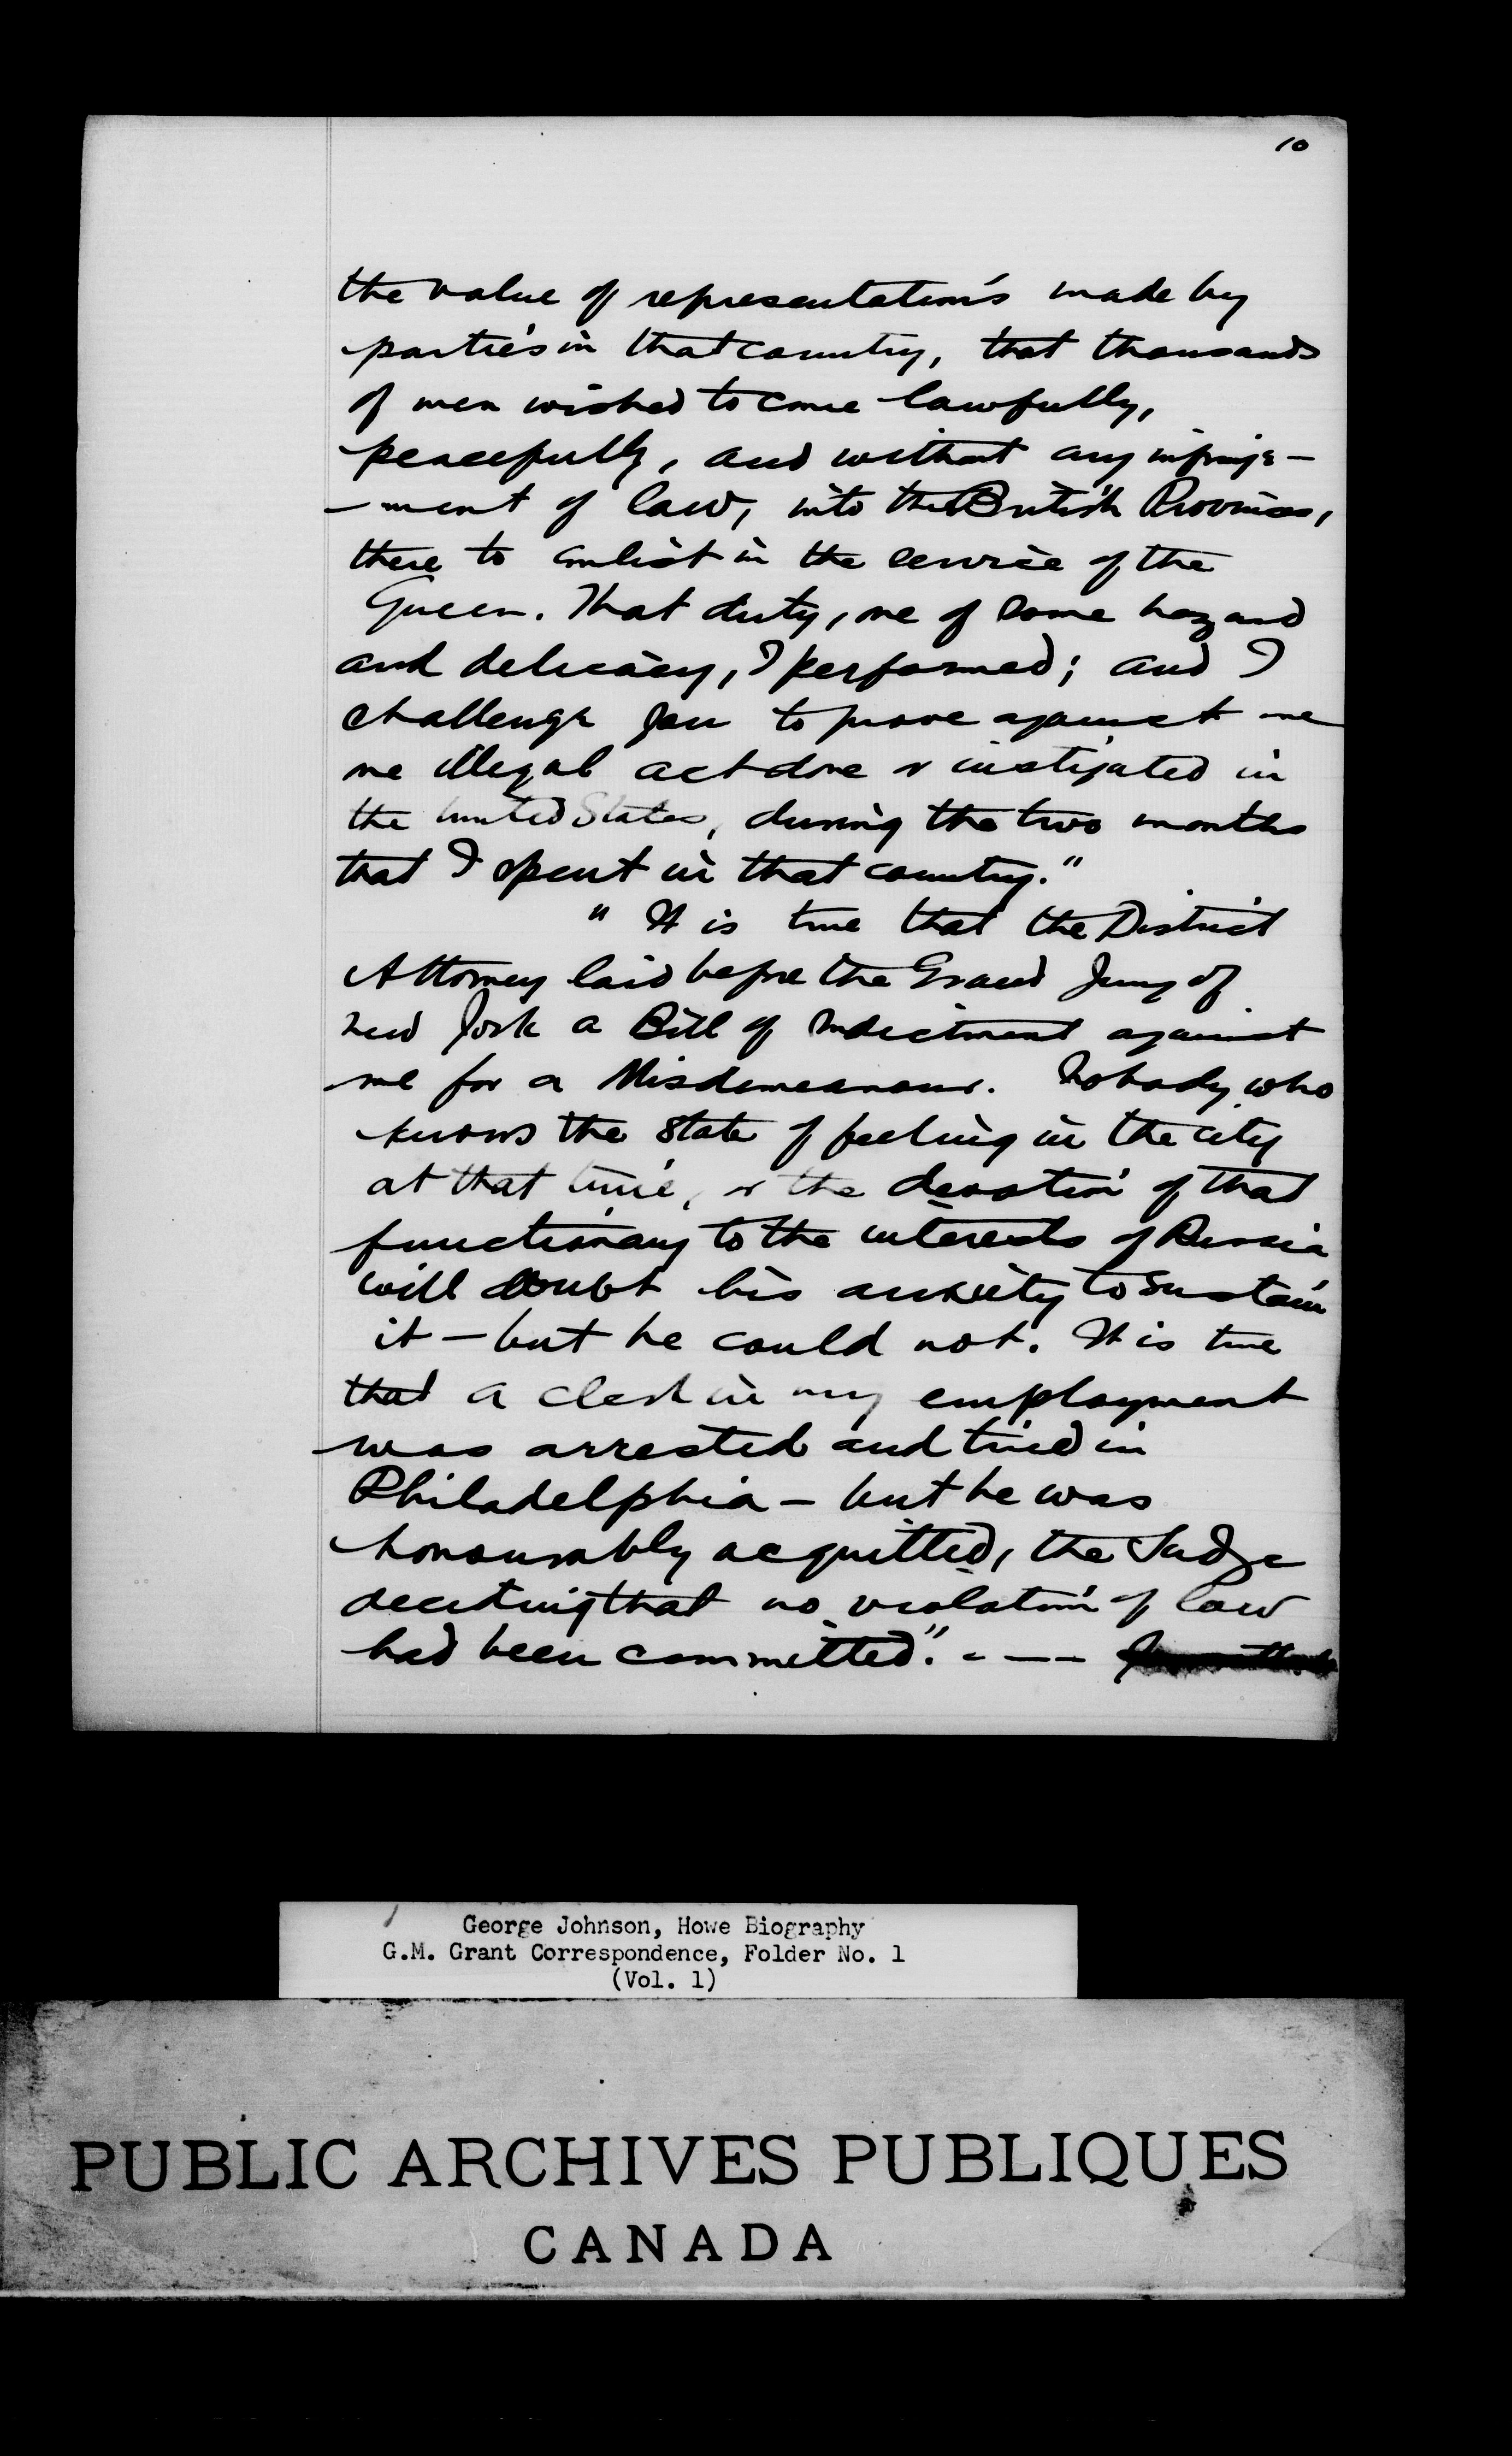 10
the value of representations made by
parties in that country, that thousands
of men wished to come lawfully,
peacefully, and without any infringe-
-ment of law, into the British Provinces,
there to enlist in the service of the
Queen. That duty, one of some hazard
and delicacy, I performed; and I
challenge you to prove against me
one illegal act done or instigated in
the United States, during the two months
that I spent in that country."
" It is true that the District
Attorney laid before the Grand Jury of
New York a Bill of Indictment against
me for a Misdemeanour. Nobody who
knows the state of feeling in the city
at that time, or the devotion of that
functionary to the interests of Russia
will doubt his anxiety to sustain
it – but he could not. It is true
that a clerk in my employment
was arrested and tried in
Philadelphia – but he was
honourably acquitted, the Judge
deciding that no violation of law
had been committed." - — —
George Johnson, Howe Biography
G.M. Grant Correspondence, Folder No. 1
(Vol. 1)
PUBLIC ARCHIVES PUBLIQUES
CANADA